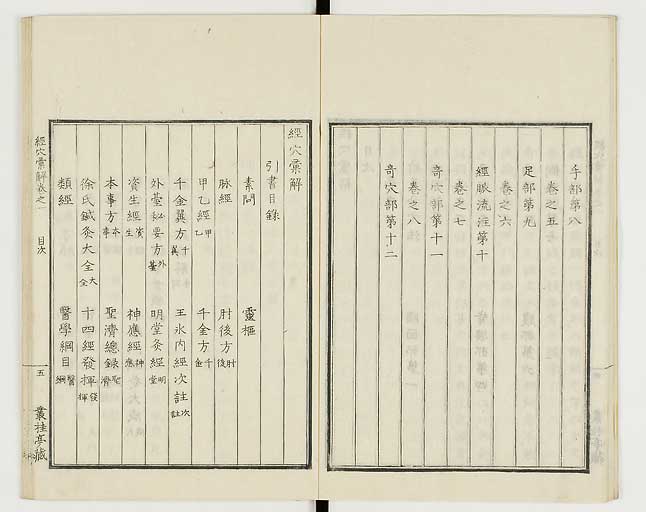 手部第八
卷之五
足部第九
卷之六
經脈流注第十
卷之七
奇穴部第十一
卷之八
奇穴部第十二
經穴彙解
引書目錄
素問 靈樞
脈經 肘後方肘後
甲乙經甲乙 千金方千金
千金翼方千翼 王氷内經次註次註
外臺秘要方外臺 明堂灸經明堂
資生經資生 神應經神應
本事方本事 聖濟總錄聖濟
徐氏鍼灸大全大全 十四經發揮發揮
類經 醫學綱目醫綱
經穴彙解卷之一 目次 五 叢桂亭藏